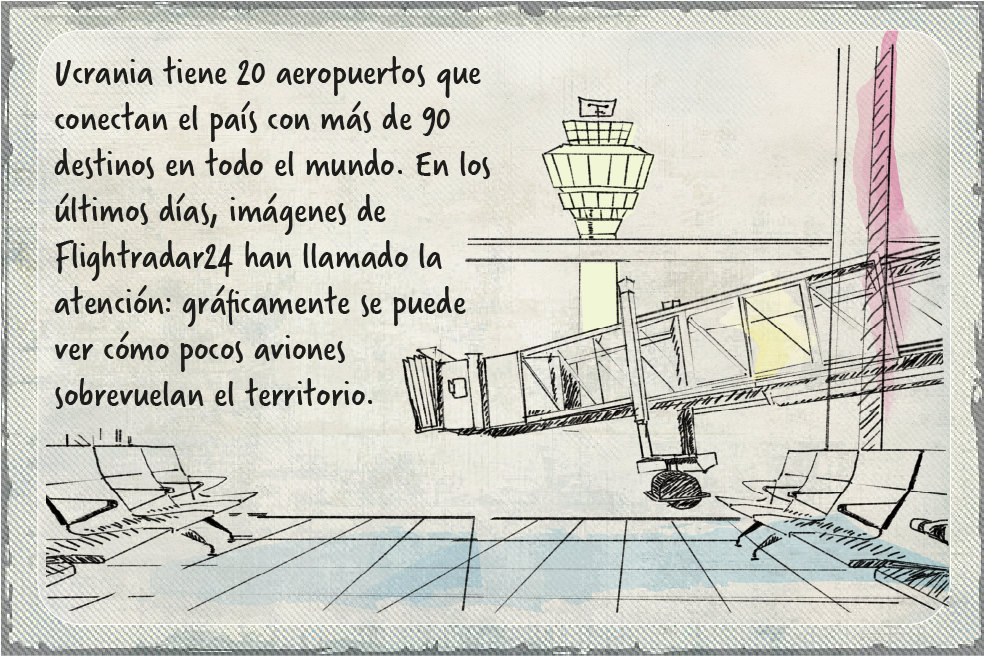 Ucrania tiene 20 aeropuertos que
conectan el país con más de 90
destinos en todo el mundo. En los
últimos días, imágenes de
Flightradar24 han llamado la
atención: gráficamente se puede
ver cómo pocos aviones
sobrevuelan el territorio.